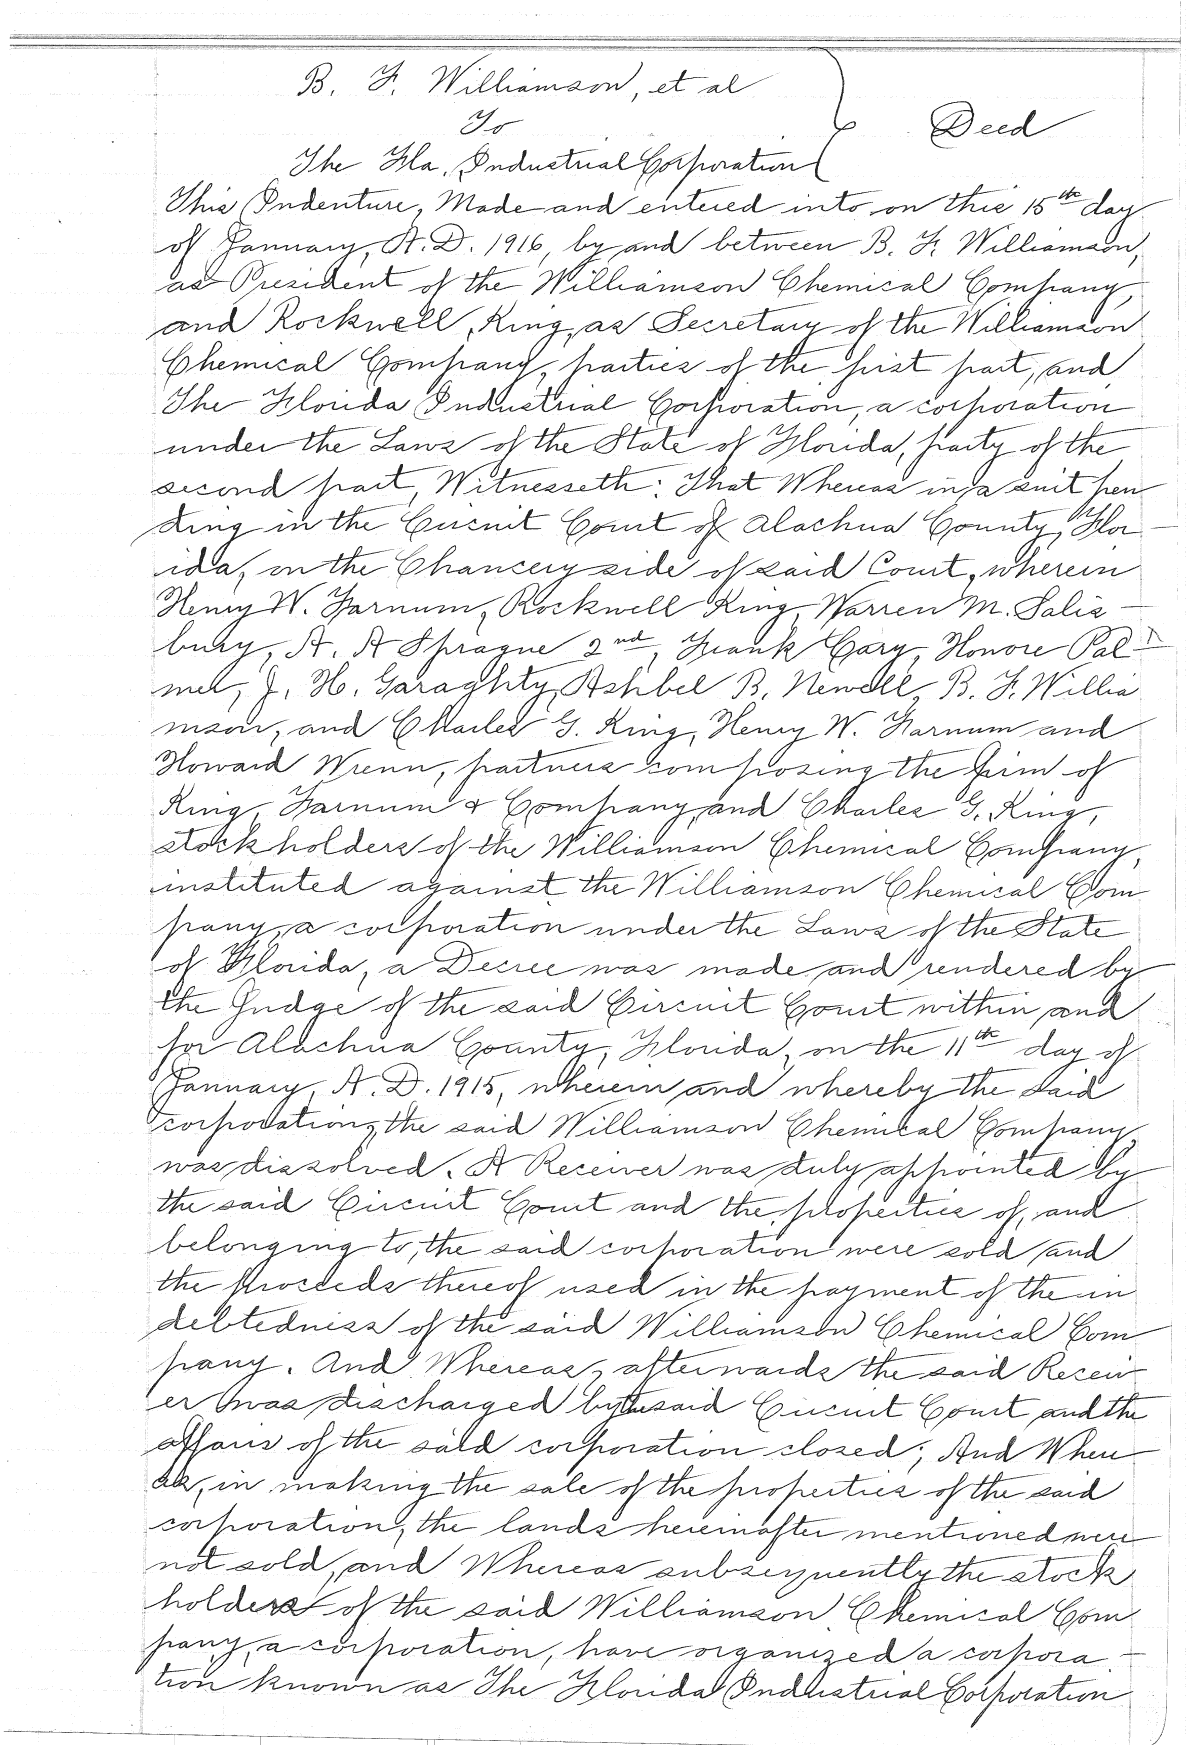 B. F. Williamson, et al
To
Deed
The Fla. Industrial Corporation
This Indenture, Made and entered into on this 15th day
of January, A. D. 1916, by and between B. F. Williamson,
as President of the Williamson Chemical Company,
and Rockwell King, as Secretary of the Williamson
Chemical Company, parties of the first part, and
The Florida Industrial Corporation, a corporation
under the Laws of the State of Florida, party of the
second part, Witnesseth: That Whereas in a suit pen
ding in the Circuit Court of Alachua County, Flor-
ida, on the Chancery side of said Court, wherein
Henry W. Farnum, Rockwell King, Warren M. Salis-
bury, A. A Sprague 2nd, Frank Cary, Honore Pal-
mer, J. H. Garaghty, Ashbel B. Newell, B. F. Willia
mson, and Charles G. King, Henry W. Farnum and
Howard Wrenn, partners composing the firm of
King, Farnum & Company, and Charles G. King,
stockholders of the Williamson Chemical Company,
instituted against the Williamson Chemical Com
pany, a corporation under the Laws of the State
of Florida, a Decree was made and rendered by
the Judge of the said Circuit Court within and
for Alachua County, Florida, on the 11th day of
January, A. D. 1915, wherein and whereby the said
corporation, the said Williamson Chemical Company,
was dissolved. A Receiver was duly appointed by
the said Circuit Court and the properties of, and
belonging to, the said corporation were sold and
the proceeds thereof used in the payment of the in
debtedness of the said Williamson Chemical Com
pany. And Whereas, afterwards the said Receiv
er was discharged by the said Circuit Court and the
affairs of the said corporation closed; And Where
as, in making the sale of the properties of the said
corporation, the lands hereinafter mentioned were
not sold, and Whereas subsequently the stock
holders of the said Williamson Chemical Com
pany, a corporation, have organized a corpora-
tion known as The Florida Industrial Corporation